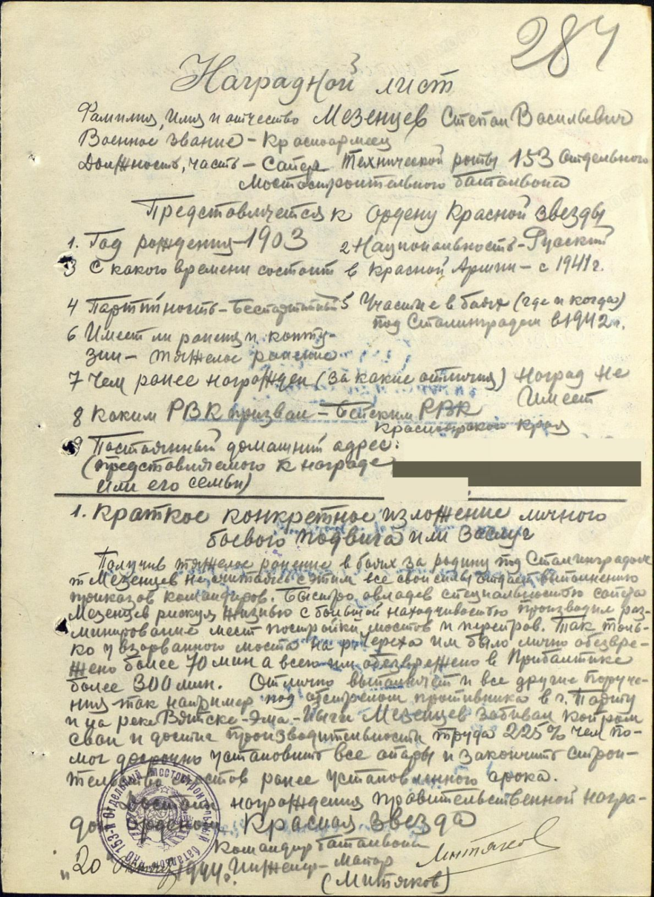 284
Наградной лист
Фамилия, Имя и отчество Мезенцев Степан Васильевич
Военное звание – Красноармеец
Должность, часть – Сапер Технической роты 153 отдельного
Мостостроительного батальона
Представляется к ордену Красной Звезды
1. Год рождения – 1903 2 Национальность – Русский
3 С какого времени состоит в Красной Армии – с 1941 г.
4 Партийность – Беспартийный 5 Участие в боях (где и когда)
под Сталинградом в 1942 г.
6 Имеет ли ранения и конту-
зии – тяжелое ранение
7 Чем ранее награжден (за какие отличия) Наград не
имеет
8 Каким РВК призван – Бейским РВК
Красноярского края
9 Постоянный домашний адрес:
(представляемого к награде
или его семьи)
1. Краткое конкретное изложение личного
боевого подвига или заслуг
Получив тяжелое ранение в боях за родину под Сталинградом
т Мезенцев не считаясь с этим все свои силы отдает выполнению
приказов командиров. Быстро овладев специальностью сапера
Мезенцев рискуя жизнью с большой находчивостью производил раз-
минирование мест постройки мостов и переправ. Так толь-
ко у взорванного моста на р. Череха им было лично обезвре-
жено более 70 мин а всего им обезврежено в Прибалтике
более 300 мин. Отлично выполняет и все другие поруче-
ния так например под обстрелом противника в г. Тарту
и на реке Вяйске-Эма-Йыги Мезенцев забивал копром
сваи и достиг производительности труда 225% чем по-
мог досрочно установить все опоры и закончить строи-
тельство мостов ранее установленного срока.
Достоин награждения правительственной награ-
дой орденом Красная Звезда
Командир батальона
"20" 1944 г. Инженер-майор Митяков
(Митяков)
153-й Отдельный Мостостроительный батальон